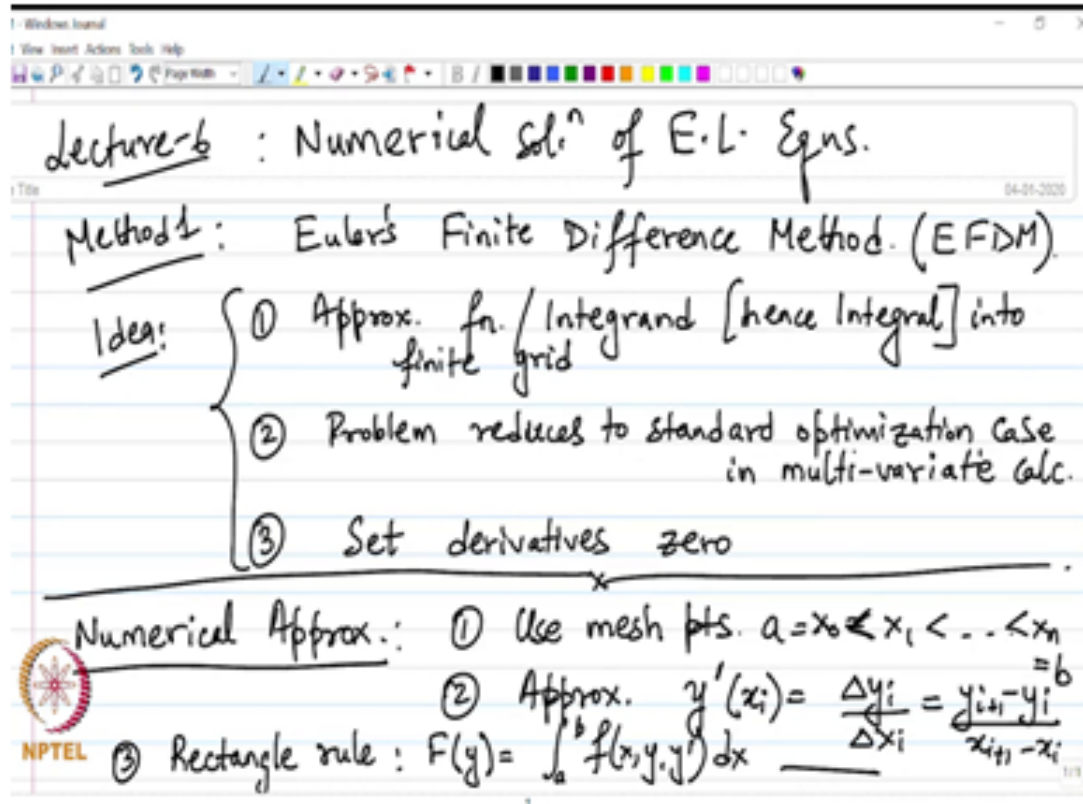 - Windows Journal
View Insert Actions Tools Help
Page Width
Lecture-6 : Numerical Sol.ⁿ of E.L. Eqns.
04-01-2020
Method 1 : Euler's Finite Difference Method. (EFDM)
Idea: ① Approx. fn. / Integrand [hence Integral] into
finite grid
② Problem reduces to standard optimization case
in multi-variate calc.
③ Set derivatives zero
x
Numerical Approx.: ① Use mesh pts. a = x₀ < x₁ < . . < xₙ
= b
② Approx. y'(xᵢ) = Δyᵢ / Δxᵢ = yᵢ₊₁ - yᵢ / xᵢ₊₁ - xᵢ
NPTEL ③ Rectangle rule : F(y) = ∫ₐᵇ f(x, y, y') dx
1/1